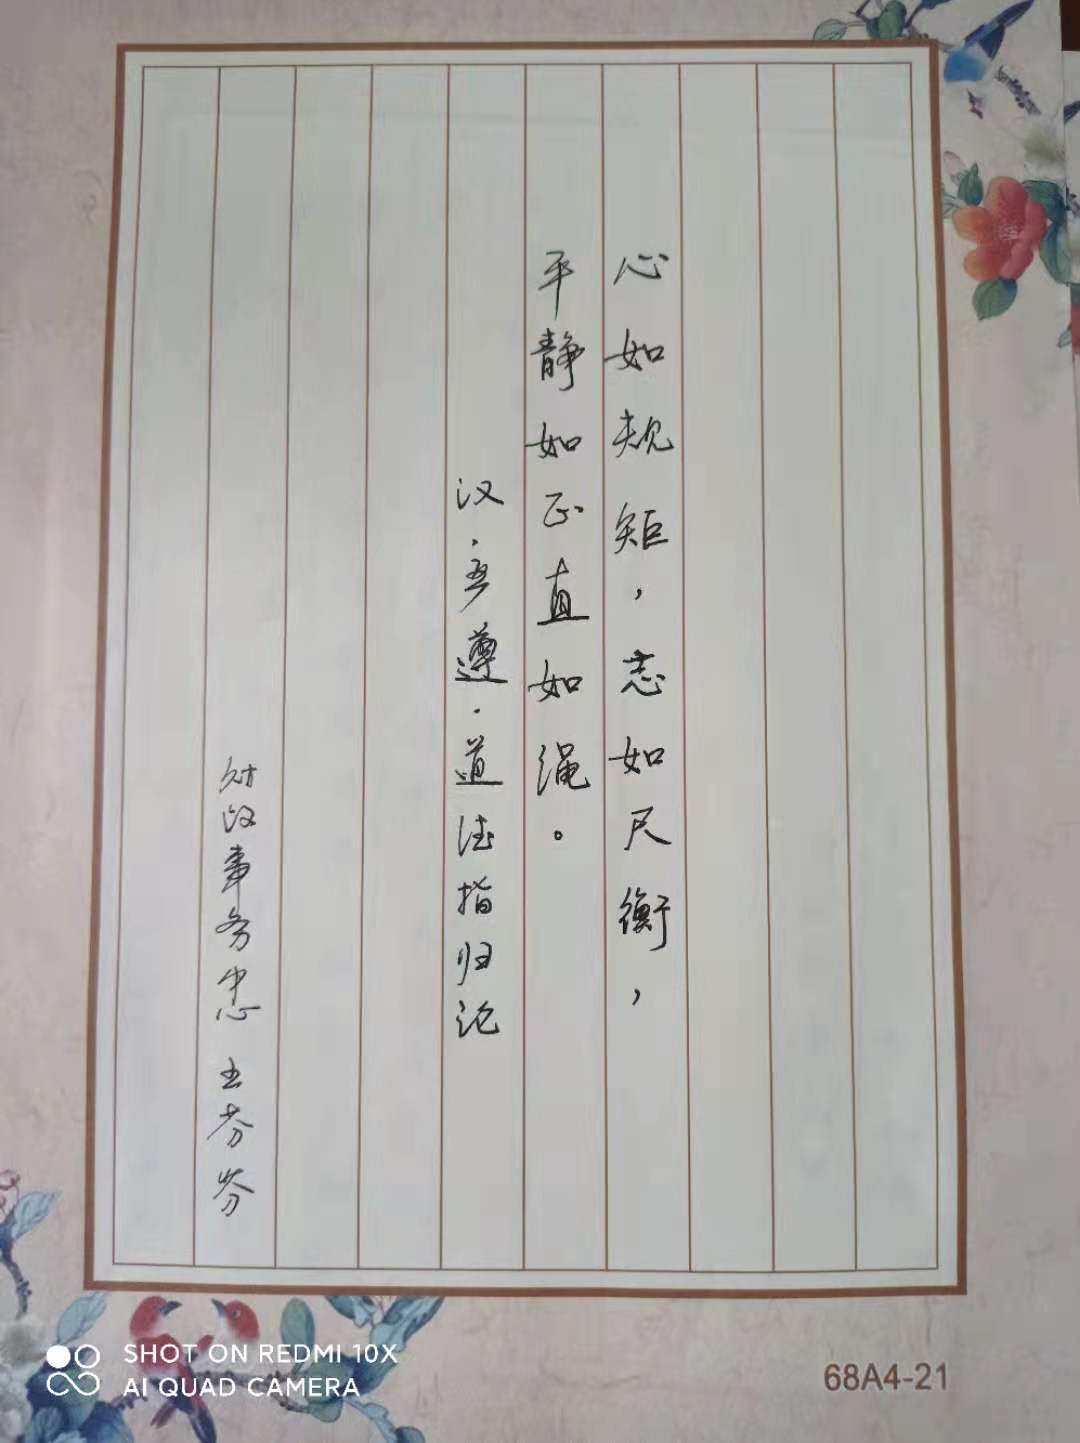 心如规矩，志如尺衡，
平静如正直如绳。
汉·严遵·道德指归论
财政事务中心 王芬芬
SHOT ON REDMI 10X
AI QUAD CAMERA
68A4-21